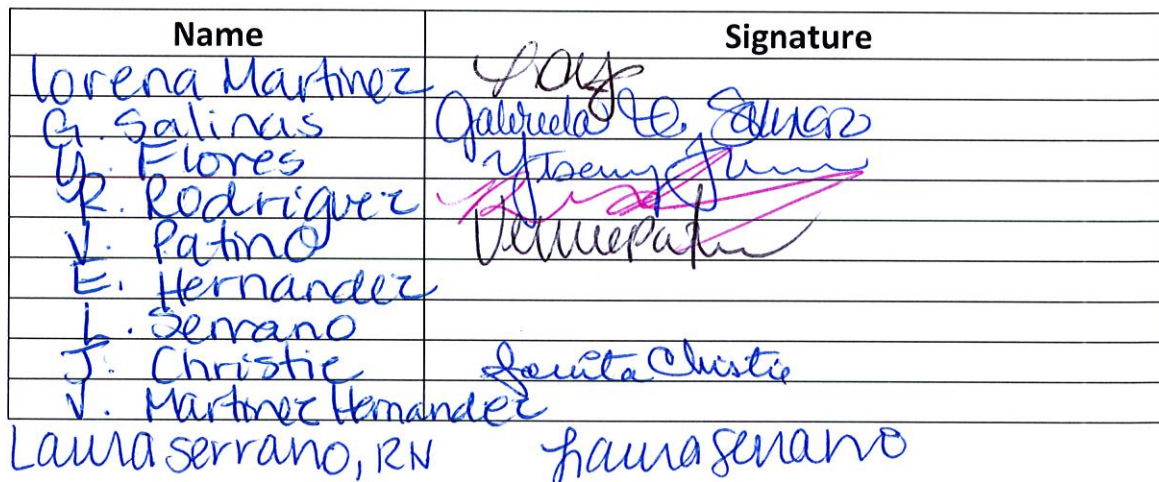 Name Signature
Lorena Martinez
G. Salinas Gabriela Salinas
Y. Flores
R. Rodriguez
V. Patino
E. Hernandez
L. Serrano
J. Christie Juanita Christie
V. Martinez Hernandez
Laura Serrano, RN Laura Serrano